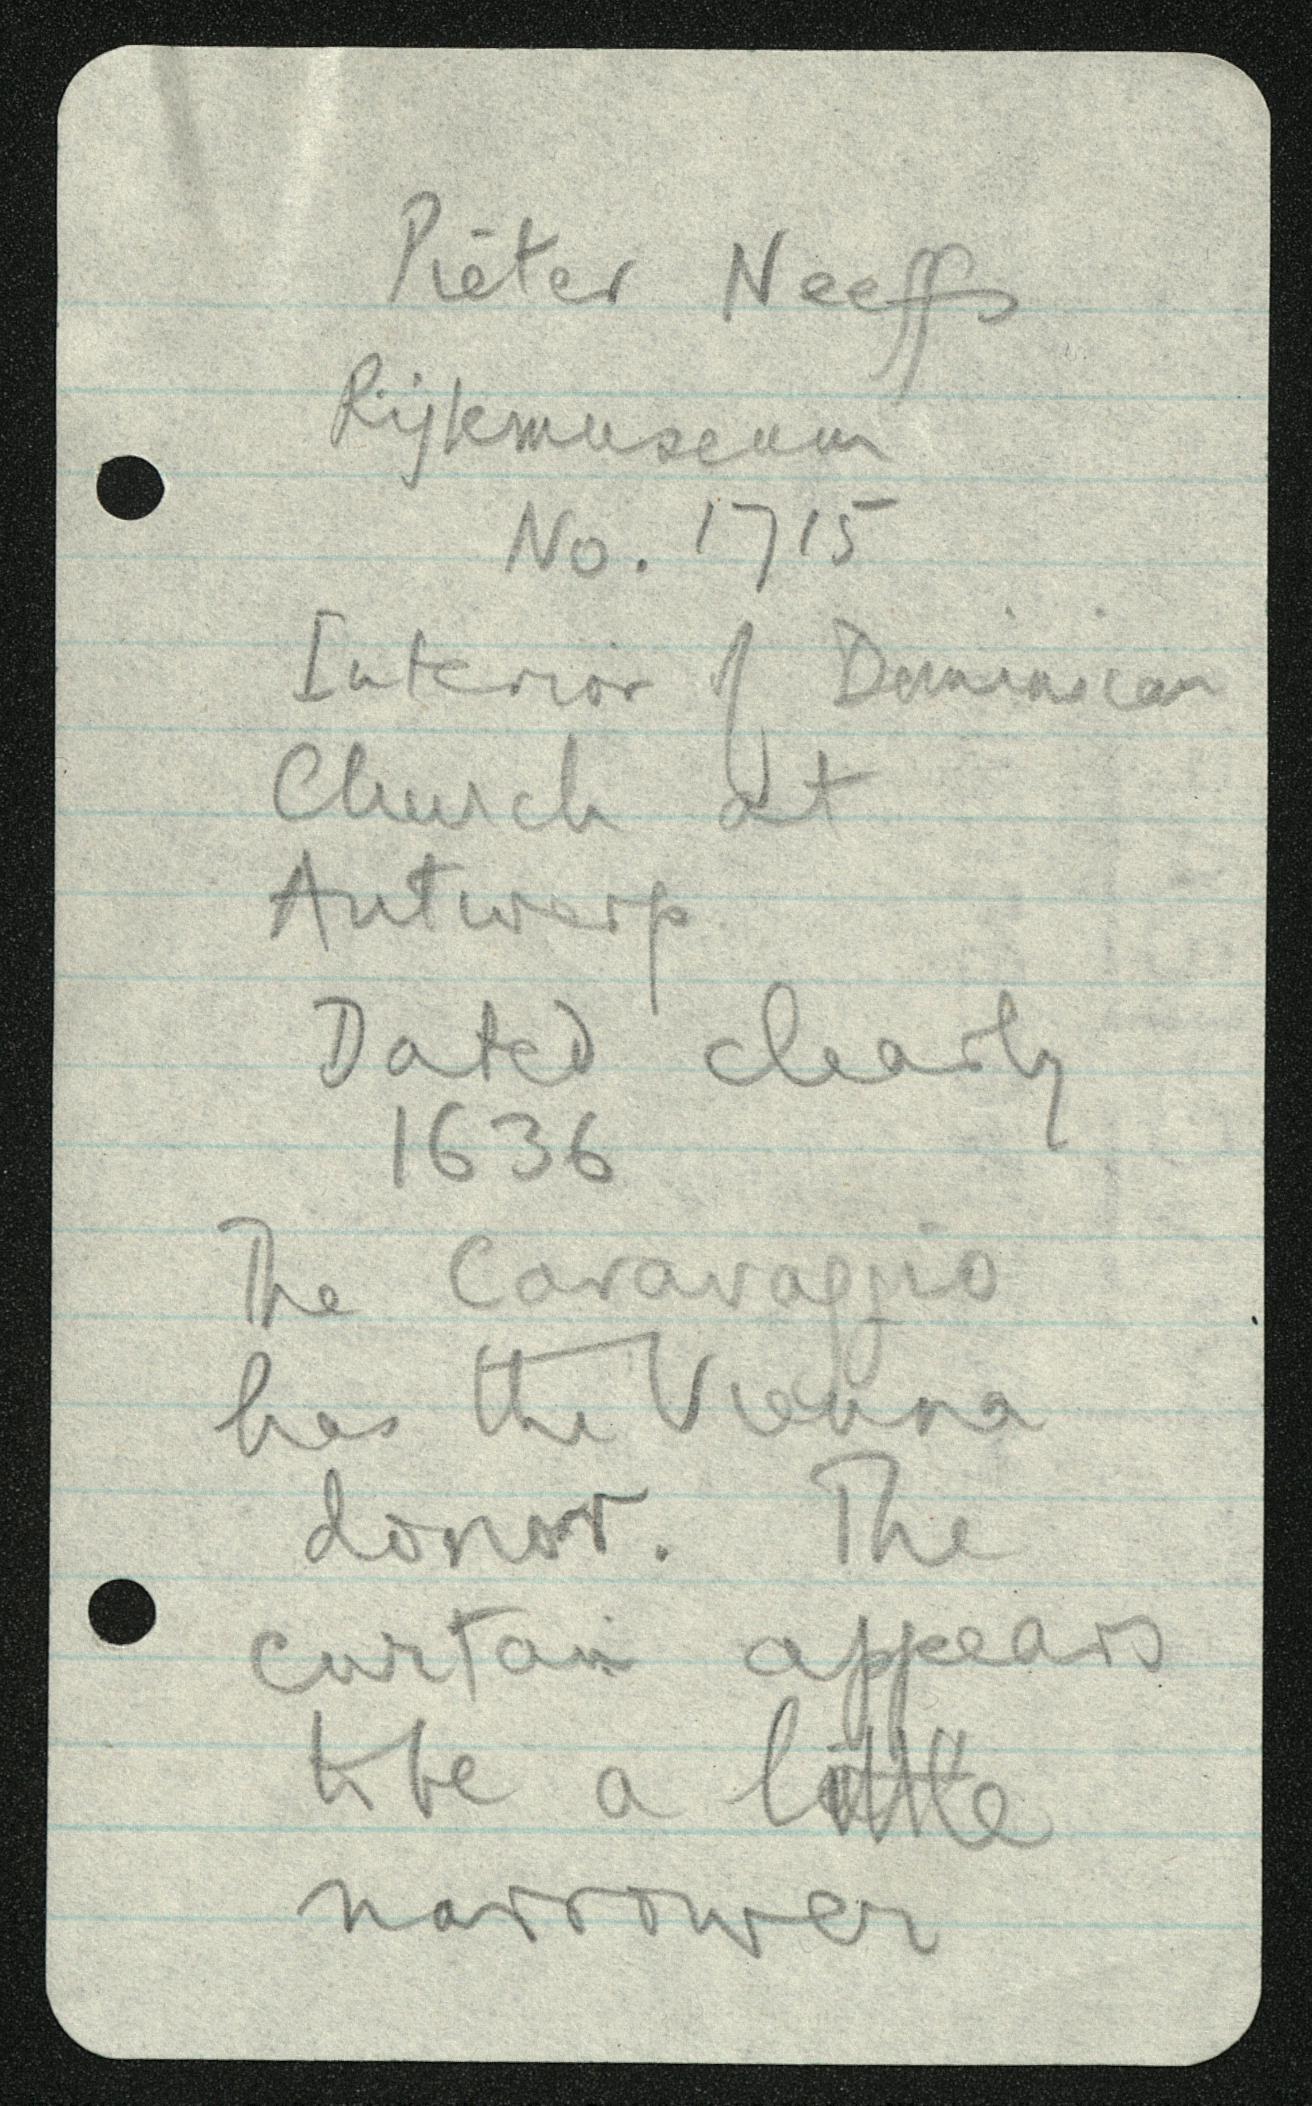 Pieter Neeffs
Rijkmuseum
No. 1715
Interior of Dominican
Church at
Antwerp
Dated clearly
1636
The Caravaggio
has the Vienna
donor. The
curtain appears
to be a little
narrower